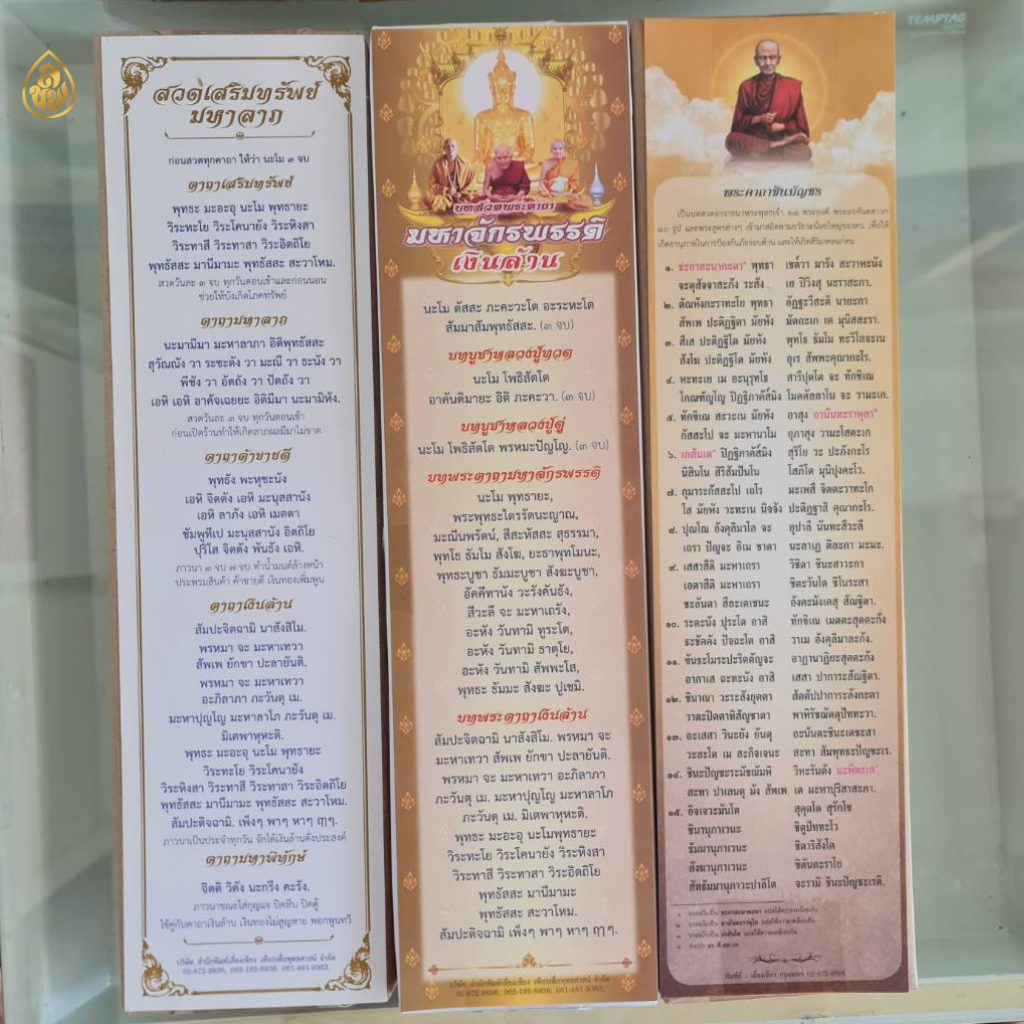 สวดเสริมทรัพย์
มหาลาภ
ก่อนสวดทุกคาถา ให้ว่า นะโม ๓ จบ
คาถาเสริมทรัพย์
พุทธะ มะอะอุ นะโม พุทธายะ
วิระทะโย วิระโคนายัง วิระหิงสา
วิระทาสี วิระทาสา วิระอิตถิโย
พุทธัสสะ มานีมามะ พุทธัสสะ สะวาโหม.
สวดวันละ ๓ จบ ทุกวันตอนเช้าและก่อนนอน
ช่วยให้บังเกิดโภคทรัพย์
คาถามหาลาภ
นะมามีมา มะหาลาภา อิติพุทธัสสะ
สุวัณณัง วา ระชะตัง วา มะณี วา ธะนัง วา
พีชัง วา อัตถัง วา ปัตถัง วา
เอหิ เอหิ อาคัจเฉยยะ อิติมีมา นะมามิหัง.
สวดวันละ ๓ จบ ทุกวันตอนเช้า
ก่อนเปิดร้านทำให้เกิดลาภผลมีมาไม่ขาด
คาถาค้าขายดี
พุทธัง พะหุชะนัง
เอหิ จิตตัง เอหิ มะนุสสานัง
เอหิ ลาภัง เอหิ เมตตา
ชัมพูทีเป มะนุสสานัง อิตถิโย
ปุริโส จิตตัง พันธัง เอหิ.
ภาวนา ๓ จบ ๗ จบ ทำน้ำมนต์ล้างหน้า
ประพรมสินค้า ค้าขายดี เงินทองเพิ่มพูน
คาถาเงินล้าน
สัมปะจิตฉามิ นาสังสิโม.
พรหมา จะ มะหาเทวา
สัพเพ ยักขา ปะลายันติ.
พรหมา จะ มะหาเทวา
อะภิลาภา ภะวันตุ เม.
มะหาปุญโญ มะหาลาโภ ภะวันตุ เม.
มิเตพาหุหะติ.
พุทธะ มะอะอุ นะโม พุทธายะ
วิระทะโย วิระโคนายัง
วิระหิงสา วิระทาสี วิระทาสา วิระอิตถิโย
พุทธัสสะ มานีมามะ พุทธัสสะ สะวาโหม.
สัมปะติจฉามิ. เพ็งๆ พาๆ หาๆ ฤๅๆ.
ภาวนาเป็นประจำทุกวัน จักได้เงินล้านดังประสงค์
คาถามหาพิทักษ์
จิตติ วิตัง นะกรึง คะรัง.
ภาวนาขณะใส่กุญแจ ปิดหีบ ปิดตู้
ใช้คู่กับคาถาเงินล้าน เงินทองไม่สูญหาย พอกพูนทวี
บริษัท สำนักพิมพ์เลี่ยงเชียง เพียรเพื่อพุทธศาสน์ จำกัด
บทสวดพระคาถา
มหาจักรพรรดิ
เงินล้าน
นะโม ตัสสะ ภะคะวะโต อะระหะโต
สัมมาสัมพุทธัสสะ. (๓ จบ)
บทบูชาหลวงปู่ทวด
นะโม โพธิสัตโต
อาคันติมายะ อิติ ภะคะวา. (๓ จบ)
บทบูชาหลวงปู่ดู่
นะโม โพธิสัตโต พรหมะปัญโญ. (๓ จบ)
บทพระคาถามหาจักรพรรดิ
นะโม พุทธายะ,
พระพุทธะไตรรัตนะญาณ,
มะณีนพรัตน์, สีสะหัสสะ สุธรรมา,
พุทโธ ธัมโม สังโฆ, ยะธาพุทโมนะ,
พุทธะบูชา ธัมมะบูชา สังฆะบูชา,
อัคคีทานัง วะรังคันธัง,
สีวะลี จะ มะหาเถรัง,
อะหัง วันทามิ ทูระโต,
อะหัง วันทามิ ธาตุโย,
อะหัง วันทามิ สัพพะโส,
พุทธะ ธัมมะ สังฆะ ปูเชมิ.
บทพระคาถาเงินล้าน
สัมปะจิตฉามิ นาสังสิโม. พรหมา จะ
มะหาเทวา สัพเพ ยักขา ปะลายันติ.
พรหมา จะ มะหาเทวา อะภิลาภา
ภะวันตุ เม. มะหาปุญโญ มะหาลาโภ
ภะวันตุ เม. มิเตพาหุหะติ.
พุทธะ มะอะอุ นะโมพุทธายะ
วิระทะโย วิระโคนายัง วิระหิงสา
วิระทาสี วิระทาสา วิระอิตถิโย
พุทธัสสะ มานีมามะ
พุทธัสสะ สะวาโหม.
สัมปะติจฉามิ เพ็งๆ พาๆ หาๆ ฤๅๆ.
บริษัท สำนักพิมพ์เลี่ยงเชียง เพียรเพื่อพุทธศาสน์ จำกัด
TEMPTAG
พระคาถาชินบัญชร
เป็นบทสวดอาราธนาพระพุทธเจ้า ๒๘ พระองค์ พระอรหันตสาวก
๘๐ รูป และพระสูตรต่างๆ เข้ามาสถิตตามอวัยวะน้อยใหญ่ของตน เพื่อให้
เกิดอานุภาพในการป้องกันภัยรอบด้าน และให้เกิดสิริมงคลแก่ตน
๑. ชะยาสะนากะตา* พุทธา เชต๎วา มารัง สะวาหะนัง
จะตุสัจจาสะภัง ระสัง เย ปิวิงสุ นะราสะภา.
๒. ตัณหังกะราทะโย พุทธา อัฏฐะวีสะติ นายะกา
สัพเพ ปะติฏฐิตา มัยหัง มัตถะเก เต มุนิสสะรา.
๓. สีเส ปะติฏฐิโต มัยหัง พุทโธ ธัมโม ทะวิโลจะเน
สังโฆ ปะติฏฐิโต มัยหัง อุเร สัพพะคุณากะโร.
๔. หะทะเย เม อะนุรุทโธ สารีปุตโต จะ ทักขิเณ
โกณฑัญโญ ปิฏฐิภาคัส๎มิง โมคคัลลาโน จะ วามะเก.
๕. ทักขิเณ สะวะเน มัยหัง อาสุง อานันทะราหุลา*
กัสสะโป จะ มะหานาโม อุภาสุง วามะโสตะเก
๖. เกสันเต* ปิฏฐิภาคัส๎มิง สุริโย วะ ปะภังกะโร
นิสินโน สิริสัมปันโน โสภิโต มุนิปุงคะโว.
๗. กุมาระกัสสะโป เถโร มะเหสี จิตตะวาทะโก
โส มัยหัง วะทะเน นิจจัง ปะติฏฐาสิ คุณากะโร.
๘. ปุณโณ อังคุลิมาโล จะ อุปาลี นันทะสีวะลี
เถรา ปัญจะ อิเม ชาตา นะลาเฏ ติละกา มะมะ.
๙. เสสาสีติ มะหาเถรา วิชิตา ชินะสาวะกา
เอตาสีติ มะหาเถรา ชิตะวันโต ชิโนระสา
ชะลันตา สีละเตเชนะ อังคะมังเคสุ สัณฐิตา.
๑๐. ระตะนัง ปุระโต อาสิ ทักขิเณ เมตตะสุตตะกัง
ธะชัคคัง ปัจฉะโต อาสิ วาเม อังคุลิมาละกัง.
๑๑. ขันธะโมระปะริตตัญจะ อาฏานาฏิยะสุตตะกัง
อากาเส ฉะทะนัง อาสิ เสสา ปาการะสัณฐิตา.
๑๒. ชินาณา วะระสังยุตตา สัตตัปปาการะลังกะตา
วาตะปิตตาทิสัญชาตา พาหิรัชฌัตตุปัททะวา.
๑๓. อะเสสา วินะยัง ยันตุ อะนันตะชินะเตชะสา
วะสะโต เม สะกิจเจนะ สะทา สัมพุทธะปัญชะเร.
๑๔. ชินะปัญชะระมัชฌัมหิ วิหะรันตัง มะหีตะเล*
สะทา ปาเลนตุ มัง สัพเพ เต มะหาปุริสาสะภา.
๑๕. อิจเจวะมันโต สุคุตโต สุรักโข
ชินานุภาเวนะ ชิตุปัททะโว
ธัมมานุภาเวนะ ชิตาริสังโค
สังฆานุภาเวนะ ชิตันตะราโย
สัทธัมมานุภาวะปาลิโต จะรามิ ชินะปัญชะเรติ.